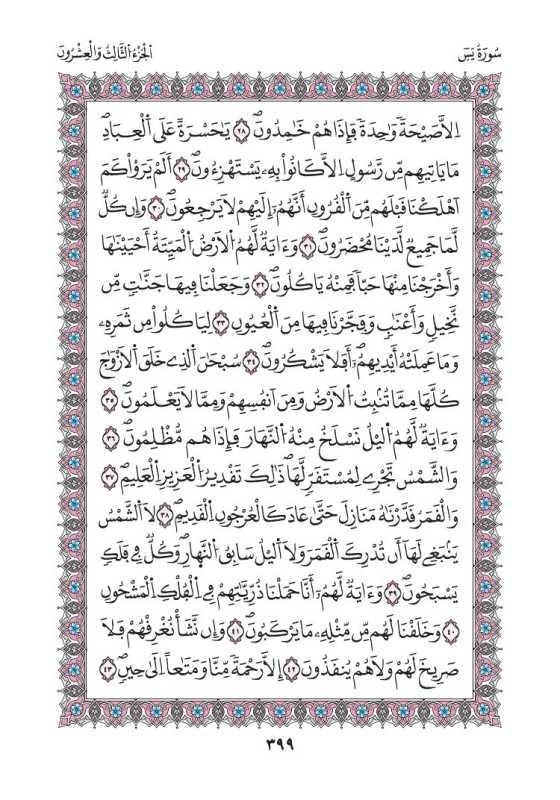 سُورَةُ يَسٓ
اَلْجُزْءُ الثَّالِثُ وَالْعِشْرُونَ
اِلَّا صَيْحَةً وَٰحِدَةً فَإِذَا هُمْ خَٰمِدُونَۖ ٢٨ يَٰحَسْرَةً عَلَى اَلْعِبَادِۖ
مَا يَاتِيهِم مِّن رَّسُولٍ اِلَّا كَانُواْ بِهِۦ يَسْتَهْزِءُونَۖ ٢٩ أَلَمْ يَرَوْاْ كَمَ
اَهْلَكْنَا قَبْلَهُم مِّنَ اَلْقُرُونِ أَنَّهُمُۥٓ إِلَيْهِمْ لَا يَرْجِعُونَۖ ٣٠ وَإِن كُلٌّ
لَّمَا جَمِيعٌ لَّدَيْنَا مُحْضَرُونَۖ ٣١ وَءَايَةٌ لَّهُمُ اُلَارْضُ اُلْمَيِّتَةُ أَحْيَيْنَٰهَا
وَأَخْرَجْنَا مِنْهَا حَبّاً فَمِنْهُ يَاكُلُونَۖ ٣٢ وَجَعَلْنَا فِيهَا جَنَّٰتٍ مِّن
نَّخِيلٍ وَأَعْنَٰبٍ وَفَجَّرْنَا فِيهَا مِنَ اَلْعُيُونِ ٣٣ لِيَاكُلُواْ مِن ثَمَرِهِۦ
وَمَا عَمِلَتْهُ أَيْدِيهِمُۥٓۖ أَفَلَا يَشْكُرُونَۖ ٣٤ سُبْحَٰنَ اَلذِے خَلَقَ اَلَازْوَٰجَ
كُلَّهَا مِمَّا تُنۢبِتُ اُلَارْضُ وَمِنَ اَنفُسِهِمْ وَمِمَّا لَا يَعْلَمُونَۖ ٣٥
وَءَايَةٌ لَّهُمُ اُليْلُ نَسْلَخُ مِنْهُ اُلنَّهَارَ فَإِذَا هُم مُّظْلِمُونَۖ ٣٦
وَالشَّمْسُ تَجْرِے لِمُسْتَقَرٍّ لَّهَاۖ ذَٰلِكَ تَقْدِيرُ اُلْعَزِيزِ اِلْعَلِيمِۖ ٣٧
وَالْقَمَرُ قَدَّرْنَٰهُ مَنَازِلَ حَتَّىٰ عَادَ كَالْعُرْجُونِ اِلْقَدِيمِۖ ٣٨ لَا اَلشَّمْسُ
يَنۢبَغِے لَهَآ أَن تُدْرِكَ اَلْقَمَرَ وَلَا اَليْلُ سَابِقُ اُلنَّهارِۖ وَكُلٌّ فِے فَلَكٍ
يَسْبَحُونَۖ ٣٩ وَءَايَةٌ لَّهُمُۥٓ أَنَّا حَمَلْنَا ذُرِّيَّٰتِهِمْ فِے اِلْفُلْكِ اِلْمَشْحُونِ
٤٠ وَخَلَقْنَا لَهُم مِّن مِّثْلِهِۦ مَا يَرْكَبُونَۖ ٤١ وَإِن نَّشَأْ نُغْرِقْهُمْ فَلَا
صَرِيخَ لَهُمْ وَلَا هُمْ يُنقَذُونَ ٤٢ إِلَّا رَحْمَةً مِّنَّا وَمَتَٰعاً اِلَىٰ حِينٍۖ ٤٣
٣٩٩